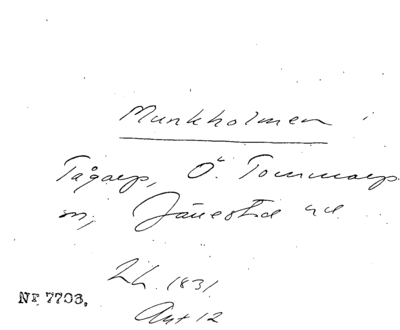 Munkholmen
Tågarp, Ö. Tommarps
sn, Järrestad hd
Lh. 1831.
Akt 12
Nr 7703.